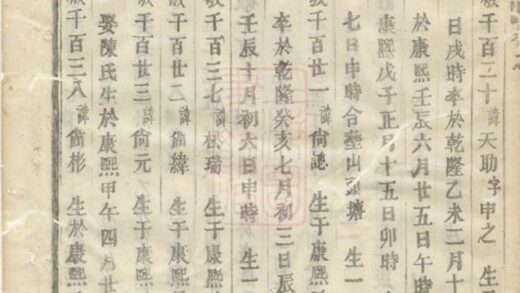 敬千百二十 諱天助字申之 生于
日戌時卒於乾隆乙未二月十
於康熙壬辰六月廿五日午時
康熙戊子正月十五日卯時
七日申時合塟山頭搪 生一
敬千百廿一 諱尙 生于康熙
卒於乾隆癸亥七月初三日辰
壬辰十月初六日申時 生一
敬千百三七 諱松瑞 生于康
敬千百廿二 諱尙緯 生于康熙
敬千百廿三 諱尙元 生于康熙
娶陳氏生於康熙甲午四月廿
敬千百三八 諱尙彬 生於康熙